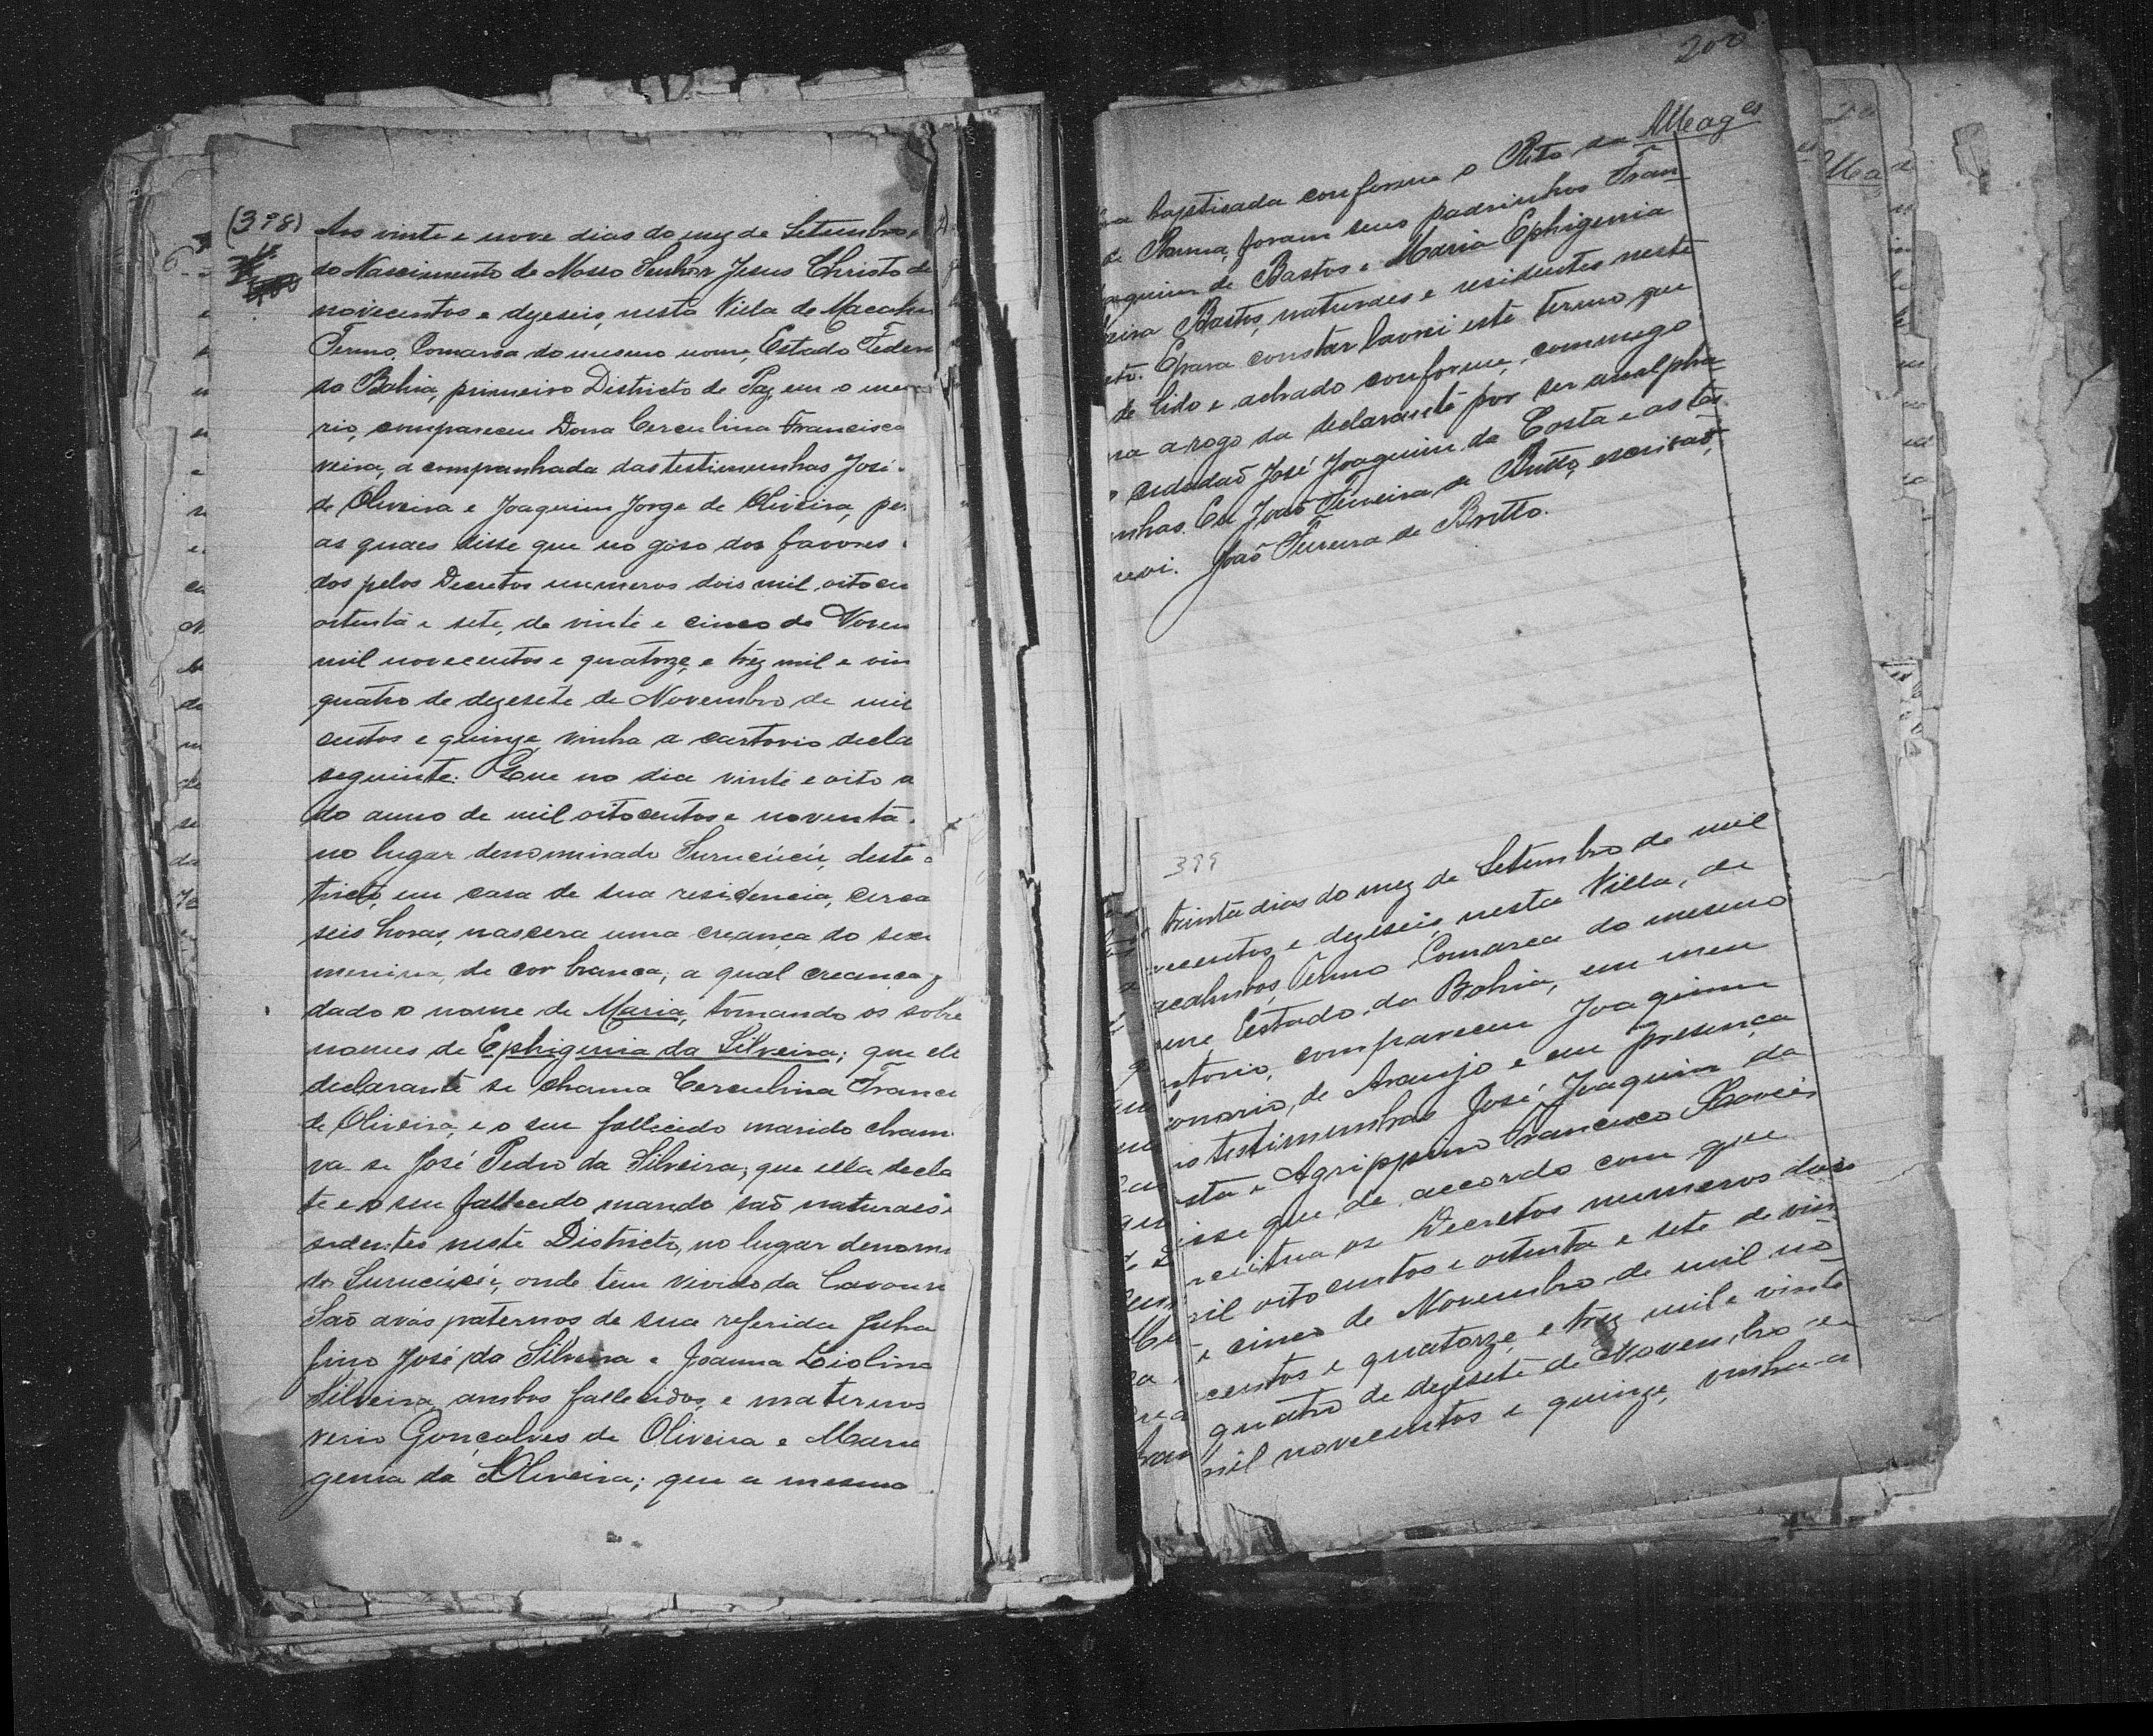 (398)
Aos vinte e nove dias do mez de Setembro,
do Nascimento de Nosso Senhor Jesus Christo de
novecentos e dezeseis, nesta Villa de Macahu
Termo, Comarca do mesmo nome, Estado Feder
da Bahia, primeiro Districto de Paz, em o meu
rio, compareceu Dona Cerculina Francisca
veira, acompanhada das testimunhas José
de Oliveira e Joaquim Jorge de Oliveira, pe
as quaes disse que no goso dos favores
dos pelos Decretos numeros dois mil, oitocen
oitenta e sete, de vinte e cinco de Novem
mil novecentos e quatorze, e trez mil e vin
quatro de dezesete de Novembro de mil
centos e quinze, vinha a cartorio decla
seguinte: Que no dia vinte e oito
do anno de mil oitocentos e noventa
no lugar denominado Surucúcú, deste
tricto, em casa de sua residencia, cerca
seis horas, nascera uma creança do sexo
menina, de cor branca, a qual creança
dado o nome de Maria, tomando os sobre
nomes de Ephigenia da Silveira; que ele
declarante se chama Cerculina Franci
de Oliveira, e o seu fallecido marido cham
va-se José Pedro da Silveira; que ella decla
te e o seu fallecido marido saõ naturaes
sidentes neste Districto, no lugar denomi
do Surucúcú, onde tem vivido da Lavoura
Saõ avós paternos de sua referida filha
fino José da Silveira e Joanna Liolina
Silveira, ambos fallecidos, e maternos
verio Gonçalves de Oliveira e Maria
genia de Oliveira; que a mesma
200
Meages
baptisada conforme o Rito da
Roma, foram seus padrinhos Fran
aquim de Bastos e Maria Ephigenia
Bastos, naturaes e residentes neste
cto. E para constar lavrei este termo que
de lido e achado conforme, commigo
na a rogo da declarante por ser analpha
o cidadaõ José Joaquim da Costa e as tes
nhas. Eu João Teixeira de Britto, escrivaõ,
revi. Joaõ Teixeira de Britto.
399
trinta dias do mez de Setembro de mil
vecentos e dezeseis, nesta Villa, de
acahubas, Termo Comarca do mesmo
me Estado da Bahia, em meu
rtorio, compareceu Joaquim
onorio, de Araujo e em presença
as testimunhas José Joaquim da
sta e Agrippino Francisco Xavier
isse que de accordo com que
receitua os Decretos numeros dois
mil oitocentos e oitenta e sete de vin
e cinco de Novembro de mil no
centos e quatorze, e trez mil e vinte
quatro de dezesete de Novembro de
mil novecentos e quinze, vinha a